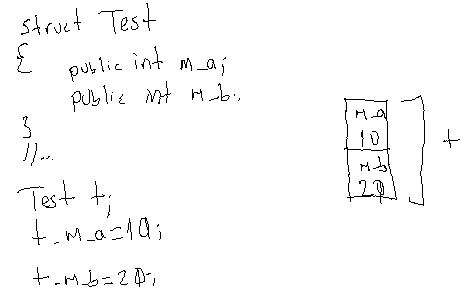 struct Test
{
public int m_a;
public int m_b;
}
//...
Test t;
t.m_a=10;
t.m_b=20;
m_a
10
m_b
20
t